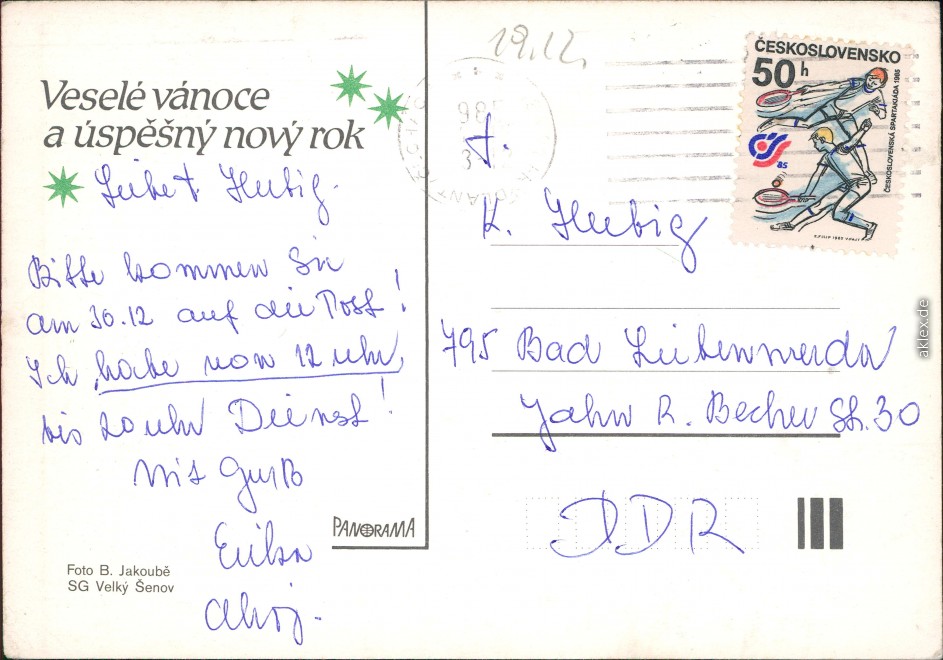 Veselé vánoce
a úspěšný nový rok
Liebe F. Hubig.
Bitte kommen Sie
am 30.12 auf die Post!
Ich habe von 12 uhr,
bis 20 uhr Dienst!
Mit Gruß
Erika
Ahoj.
PANORAMA
Foto B. Jakoubě
SG Velký Šenov
19.12.
ČESKOSLOVENSKO
50h
ČESKOSLOVENSKÁ SPARTAKIÁDA 1985
85
F.
K. Hubig
795 Bad Liebenwerda
Johan R. Becher Str. 30
DDR
aklex.de